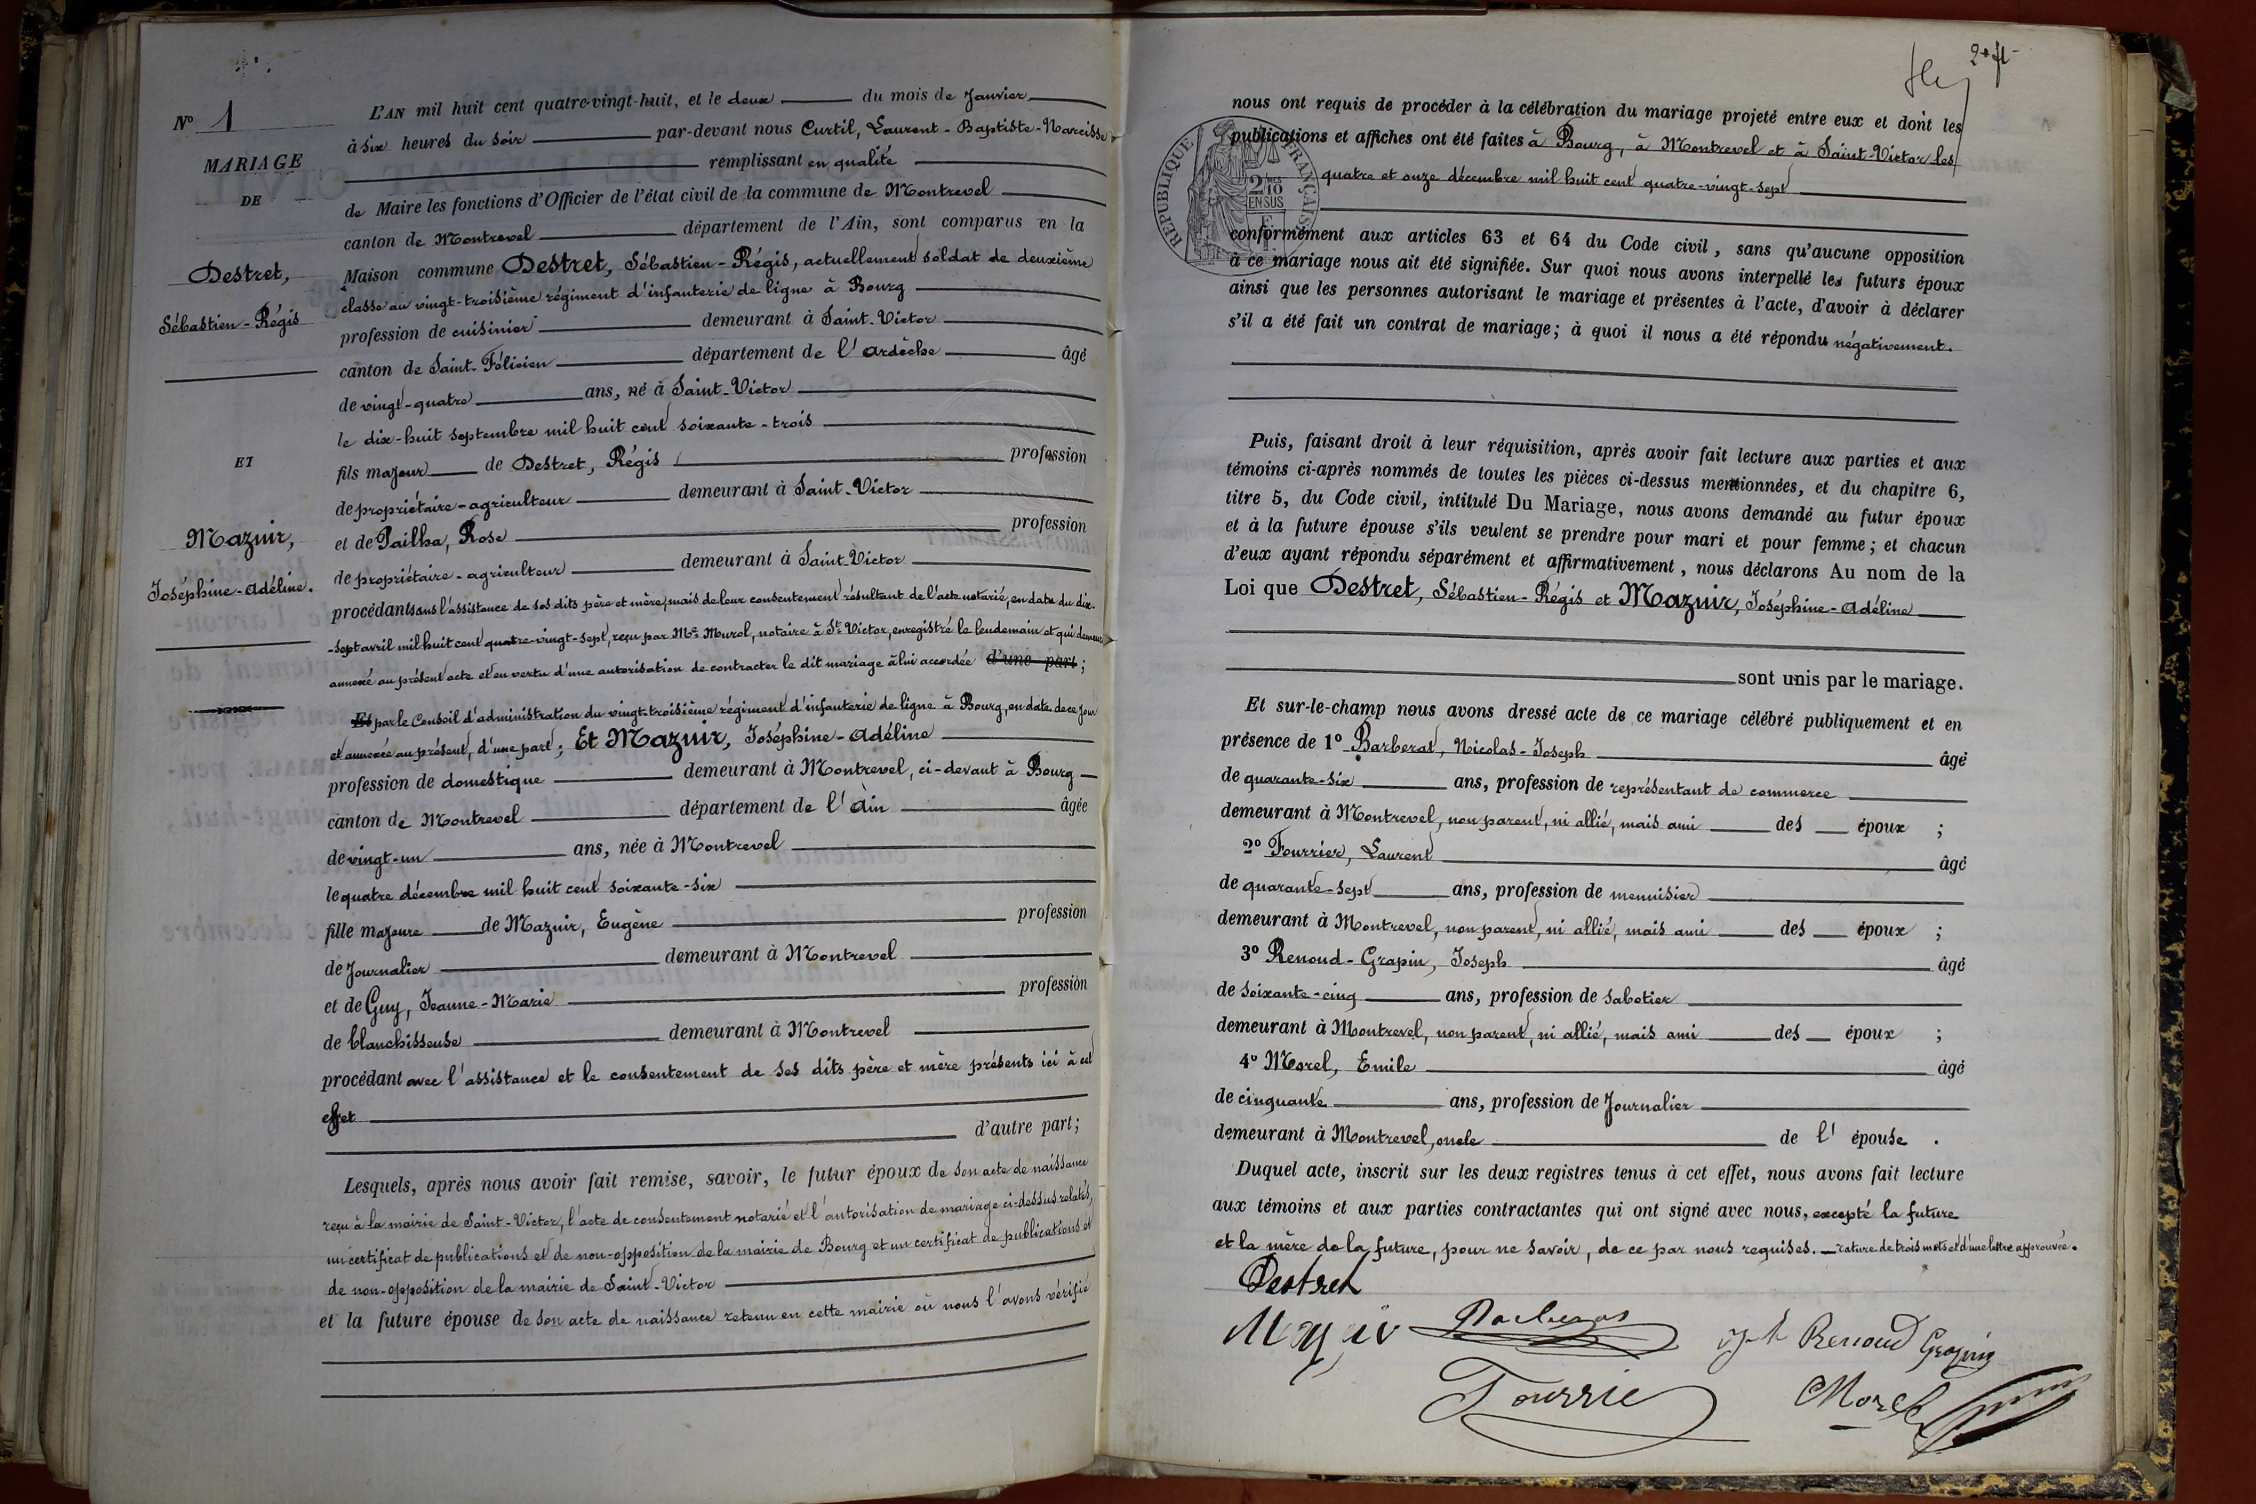 N° 1
MARIAGE
DE
Destret,
Sébastien-Régis
ET
Mazuir,
Joséphine-Adéline.
L'AN mil huit cent quatre-vingt-huit, et le deux du mois de Janvier
à six heures du soir par-devant nous Curtil, Laurent-Baptiste-Narcisse
remplissant en qualité
de Maire les fonctions d'Officier de l'état civil de la commune de Montrevel
canton de Montrevel département de l'Ain, sont comparus en la
Maison commune Destret, Sébastien-Régis, actuellement soldat de deuxième
classe au vingt-troisième régiment d'infanterie de ligne à Bourg
profession de cuisinier demeurant à Saint-Victor
canton de Saint-Félicien département de l'Ardèche âgé
de vingt-quatre ans, né à Saint-Victor
le dix-huit septembre mil huit cent soixante-trois
fils majeur de Destret, Régis profession
de propriétaire-agriculteur demeurant à Saint-Victor
et de Pailha, Rose profession
de propriétaire-agriculteur demeurant à Saint-Victor
procédant sans l'assistance de ses dits père et mère, mais de leur consentement résultant de l'acte notarié, en date du dix-
-sept avril mil huit cent quatre-vingt-sept, reçu par Me Murol, notaire à St Victor, enregistré le lendemain et qui demeure
annexé au présent acte et en vertu d'une autorisation de contracter le dit mariage à lui accordée d'une part;
Et par le Conseil d'administration du vingt-troisième régiment d'infanterie de ligne à Bourg, en date de ce jour
et annexée au présent, d'une part; Et Mazuir, Joséphine-Adéline
profession de domestique demeurant à Montrevel, ci-devant à Bourg
canton de Montrevel département de l'Ain âgée
de vingt-un ans, née à Montrevel
le quatre décembre mil huit cent soixante-six
fille majeure de Mazuir, Eugène profession
de Journalier demeurant à Montrevel
et de Guy, Jeanne-Marie profession
de blanchisseuse demeurant à Montrevel
procédant avec l'assistance et le consentement de ses dits père et mère présents ici à cet
effet
d'autre part;
Lesquels, après nous avoir fait remise, savoir, le futur époux de son acte de naissance
reçu à la mairie de Saint-Victor, l'acte de consentement notarié et l'autorisation de mariage ci-dessus relatés,
un certificat de publications et de non-opposition de la mairie de Bourg et un certificat de publications et
de non-opposition de la mairie de Saint-Victor
et la future épouse de son acte de naissance retenu en cette mairie où nous l'avons vérifié
RÉPUBLIQUE FRANÇAISE
2 10
EN SUS
nous ont requis de procéder à la célébration du mariage projeté entre eux et dont les
publications et affiches ont été faites à Bourg, à Montrevel et à Saint-Victor les
quatre et onze décembre mil huit cent quatre-vingt-sept
conformément aux articles 63 et 64 du Code civil, sans qu'aucune opposition
à ce mariage nous ait été signifiée. Sur quoi nous avons interpellé les futurs époux
ainsi que les personnes autorisant le mariage et présentes à l'acte, d'avoir à déclarer
s'il a été fait un contrat de mariage; à quoi il nous a été répondu négativement.
Puis, faisant droit à leur réquisition, après avoir fait lecture aux parties et aux
témoins ci-après nommés de toutes les pièces ci-dessus mentionnées, et du chapitre 6,
titre 5, du Code civil, intitulé Du Mariage, nous avons demandé au futur époux
et à la future épouse s'ils veulent se prendre pour mari et pour femme; et chacun
d'eux ayant répondu séparément et affirmativement, nous déclarons Au nom de la
Loi que Destret, Sébastien-Régis et Mazuir, Joséphine-Adéline
sont unis par le mariage.
Et sur-le-champ nous avons dressé acte de ce mariage célébré publiquement et en
présence de 1° Barberat, Nicolas-Joseph âgé
de quarante-six ans, profession de représentant de commerce
demeurant à Montrevel, non parent, ni allié, mais ami des époux ;
2° Fourrier, Laurent âgé
de quarante-sept ans, profession de menuisier
demeurant à Montrevel, non parent, ni allié, mais ami des époux ;
3° Renoud-Grapin, Joseph âgé
de soixante-cinq ans, profession de sabotier
demeurant à Montrevel, non parent, ni allié, mais ami des époux ;
4° Morel, Emile âgé
de cinquante ans, profession de Journalier
demeurant à Montrevel, oncle de l'épouse.
Duquel acte, inscrit sur les deux registres tenus à cet effet, nous avons fait lecture
aux témoins et aux parties contractantes qui ont signé avec nous, excepté la future
et la mère de la future, pour ne savoir, de ce par nous requises. — rature de trois mots et d'une lettre approuvée.
Destret
Renoud Grapin
Fourrie
Morel